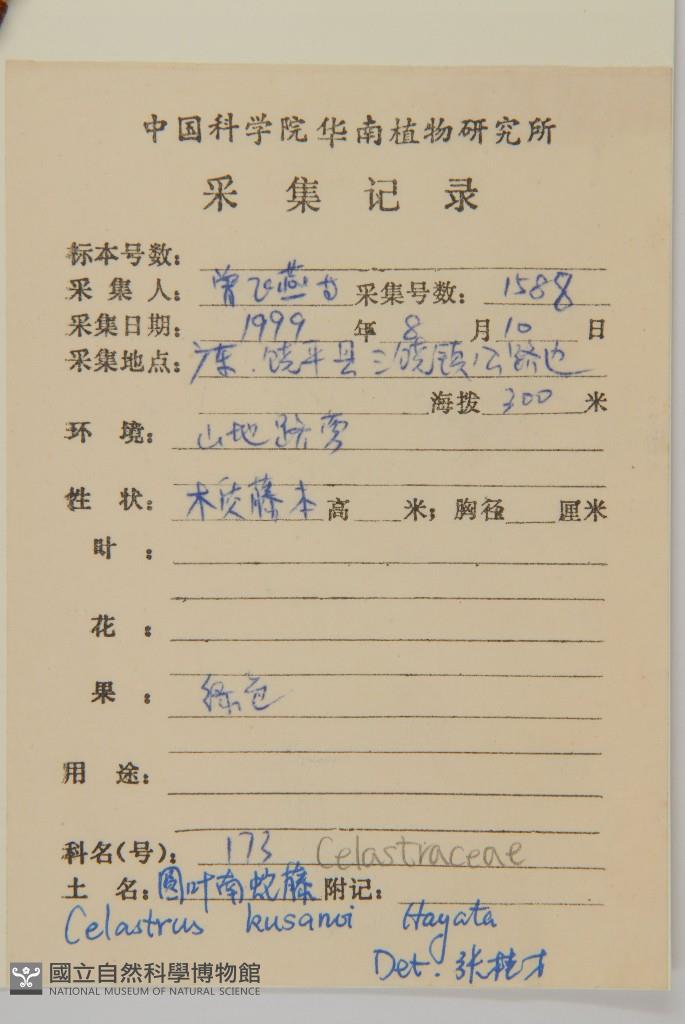 中国科学院华南植物研究所
采集记录
标本号数：
采集人：曾飞燕 采集号数：1588
采集日期：1999年8月10日
采集地点：广东．饶平县三饶镇公路边
海拨300米
环境：山地路旁
性状：木质藤本 高 米；胸径 厘米
叶：
花：
果：绿色
用途：
科名(号)：173 Celastraceae
土名：圆叶南蛇藤 附记：
Celastrus kusanoi Hayata
Det. 张桂才
國立自然科學博物館
NATIONAL MUSEUM OF NATURAL SCIENCE